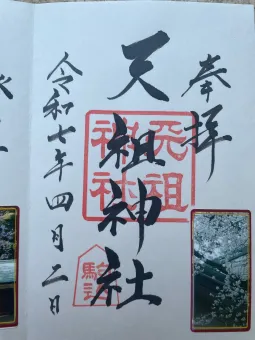 奉拝
天祖神社
令和七年四月二日
天祖神社